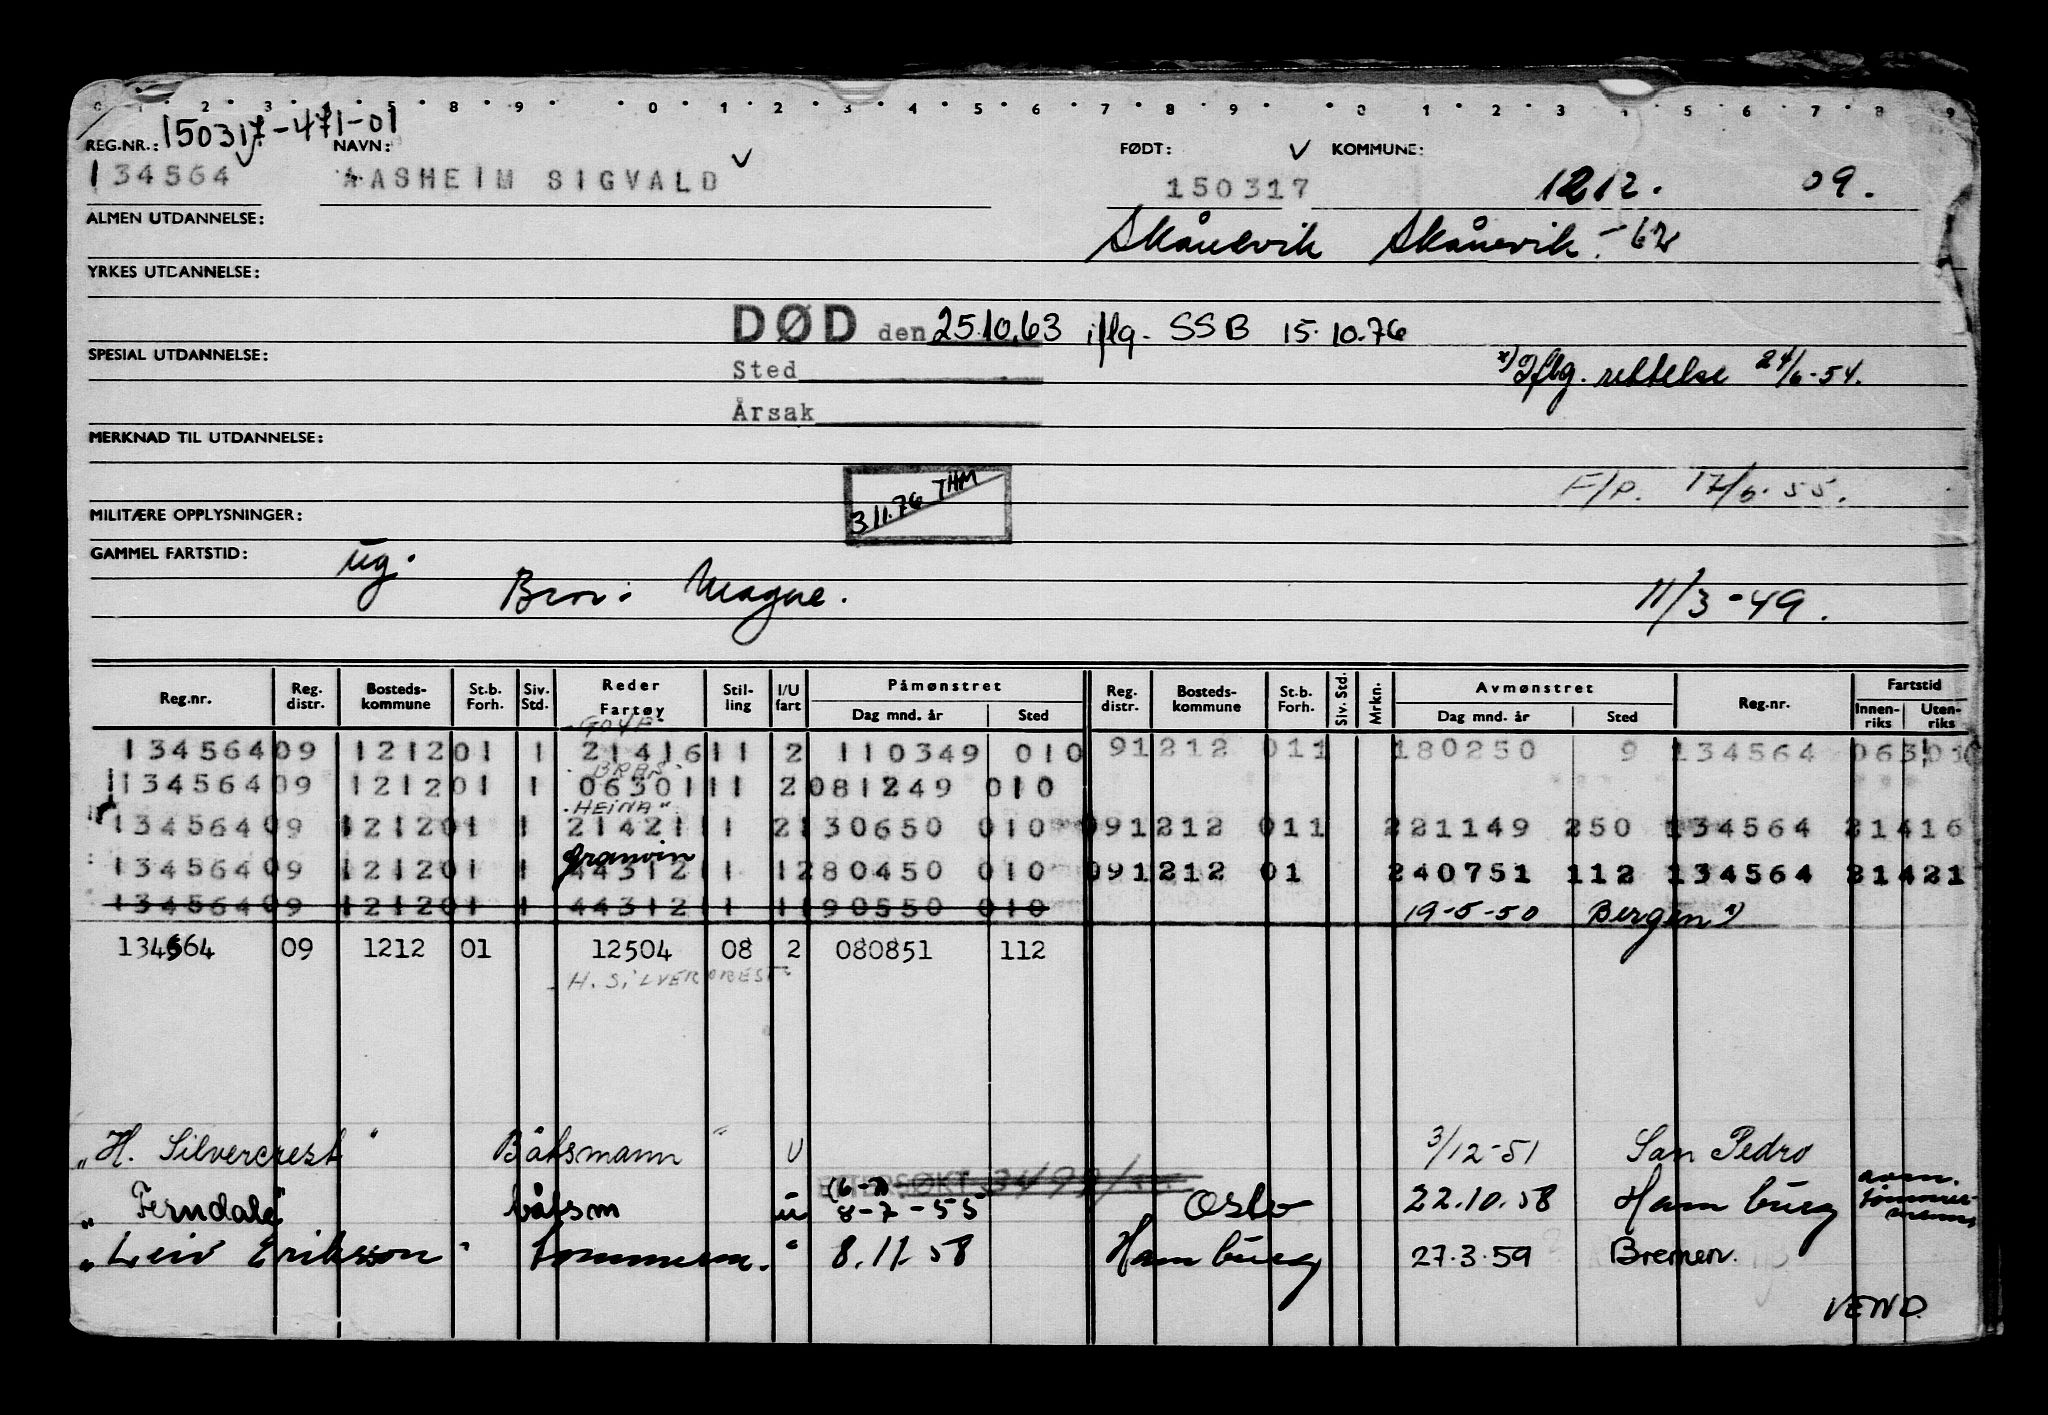 0 1 2 3 4 5 8 9 0 1 2 3 4 5 6 7 8 9 0 1 2 3 4 5 6 7 8 9
150317-471-01
REG.NR.: NAVN: FØDT: KOMMUNE:
134564 AASHEIM SIGVALD 150317 1212. 09.
ALMEN UTDANNELSE: Skånevik Skånevik -62
YRKES UTDANNELSE:
DØD den 25.10.63 iflg. SSB 15.10.76
SPESIAL UTDANNELSE: Sted x) Iflg. rettelse 24/6-54.
Årsak
MERKNAD TIL UTDANNELSE:
3.11.76 THM F/P. 17/6.55.
MILITÆRE OPPLYSNINGER:
GAMMEL FARTSTID: ug.
Bror: Magne. 11/3-49.
Reg.nr. Reg. distr. Bosteds- kommune St.b. Forh. Siv. Std. Reder Fartøy Stil- ling I/U fart Påmønstret Dag mnd. år Sted Reg. distr. Bosteds- kommune St.b. Forh. Siv. Std. Mrkn. Avmønstret Dag mnd. år Sted Reg.nr. Fartstid Innen- riks Uten- riks
134564 09 1212 01 1 21416 11 2 110349 010 91212 011 180250 9 134564
134564 09 1212 01 1 06301 11 2 081249 010
"HEINA"
134564 09 1212 01 1 21421 11 2 130650 010 091212 011 221149 250 134564 21416
Granvin
134564 09 1212 01 1 44312 11 1 280450 010 091212 01 240751 112 134564 21421
134564 09 1212 01 1 44312 11 1 190550 010 19-5-50 Bergen x)
134564 09 1212 01 12504 08 2 080851 112
H. SILVERCREST
"H. Silvercrest" Båtsmann " U 3/12-51 San Pedro
"Ferndale" båtsm u (6-7) 8-7-55 Oslo 22.10.58 Hamburg avm. tømmermann
"Leiv Eriksson" tømmerm. " 8.11.58 Hamburg 27.3.59 Bremen.
VEND.